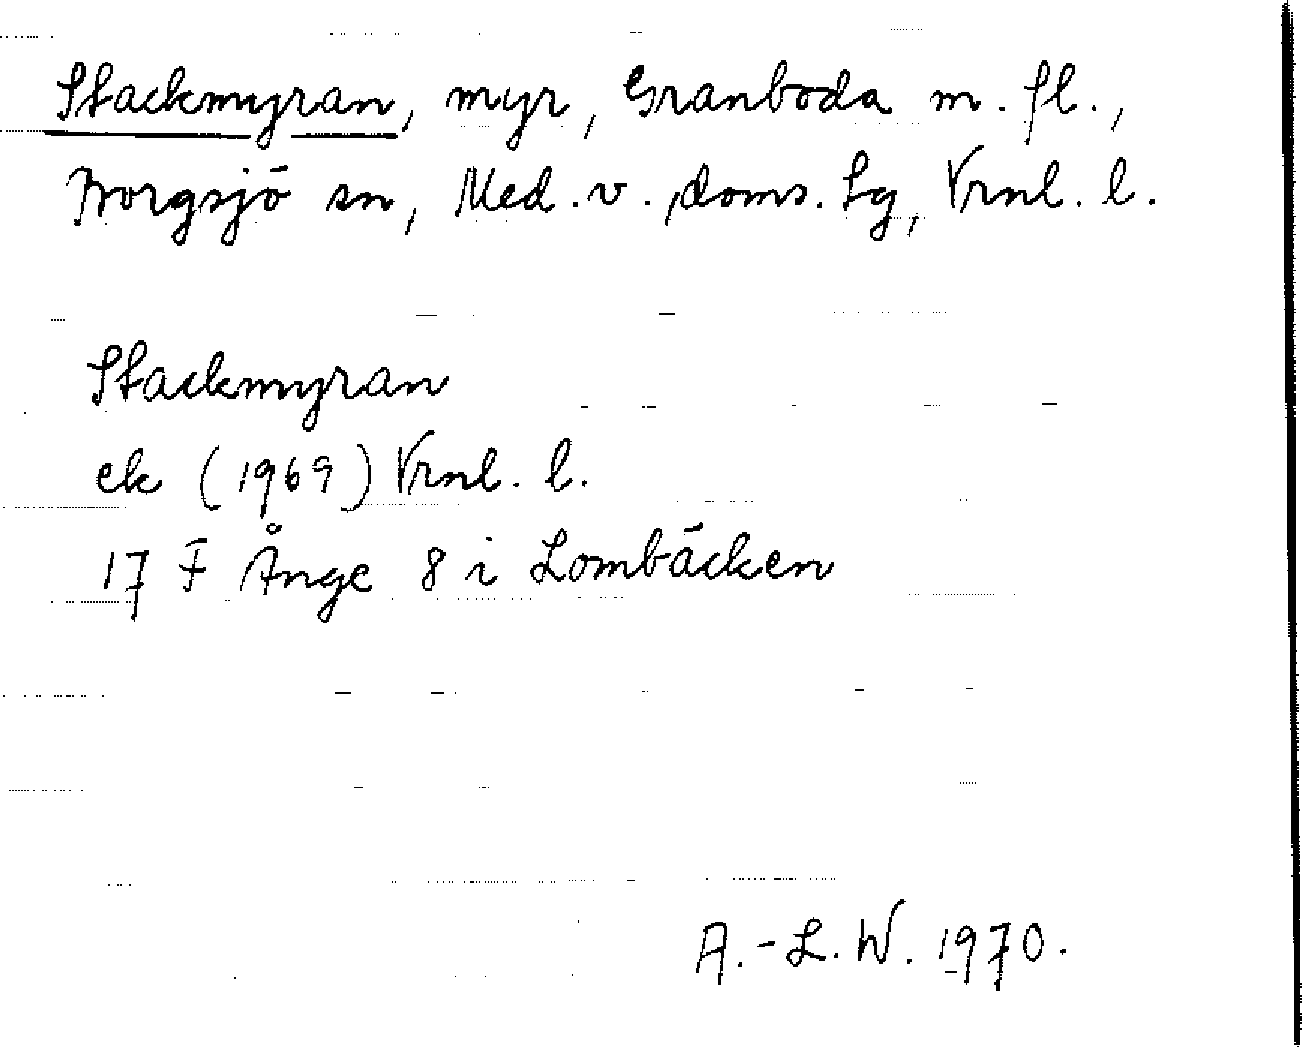 Stackmyran, myr, Granboda m. fl.,
Borgsjö sn, Med. v. doms. lg, Vrnl. l.
Stackmyran
ek (1969) Vrnl. l.
17 F Ånge 8 i Lombäcken
A.-L. W. 1970.